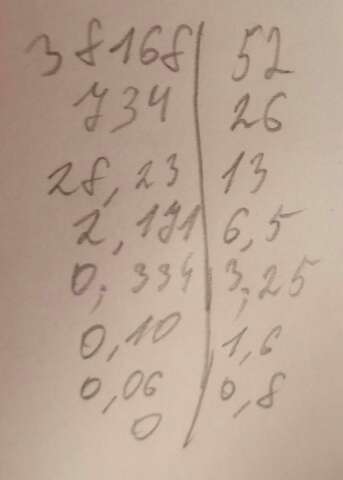 38168 | 52
734 | 26
28,23 | 13
2,171 | 6,5
0,334 | 3,25
0,10 | 1,6
0,06 | 0,8
0